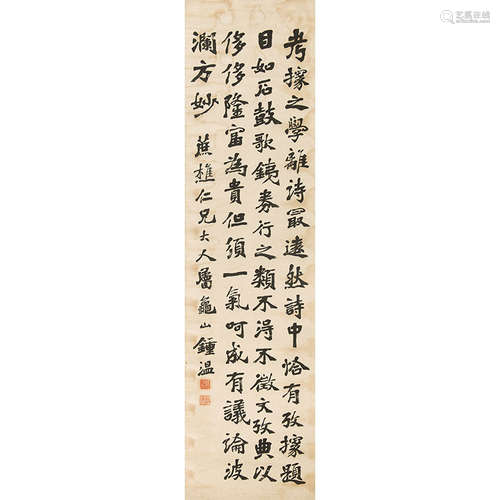 考據之學離詩最遠然詩中恰有攷據題
目如石鼓歌鐵券行之類不得不徵文攷典以
侈侈隆富為貴但須一氣呵成有議論波
瀾方妙 蕉樵仁兄大人屬 龜山鍾温